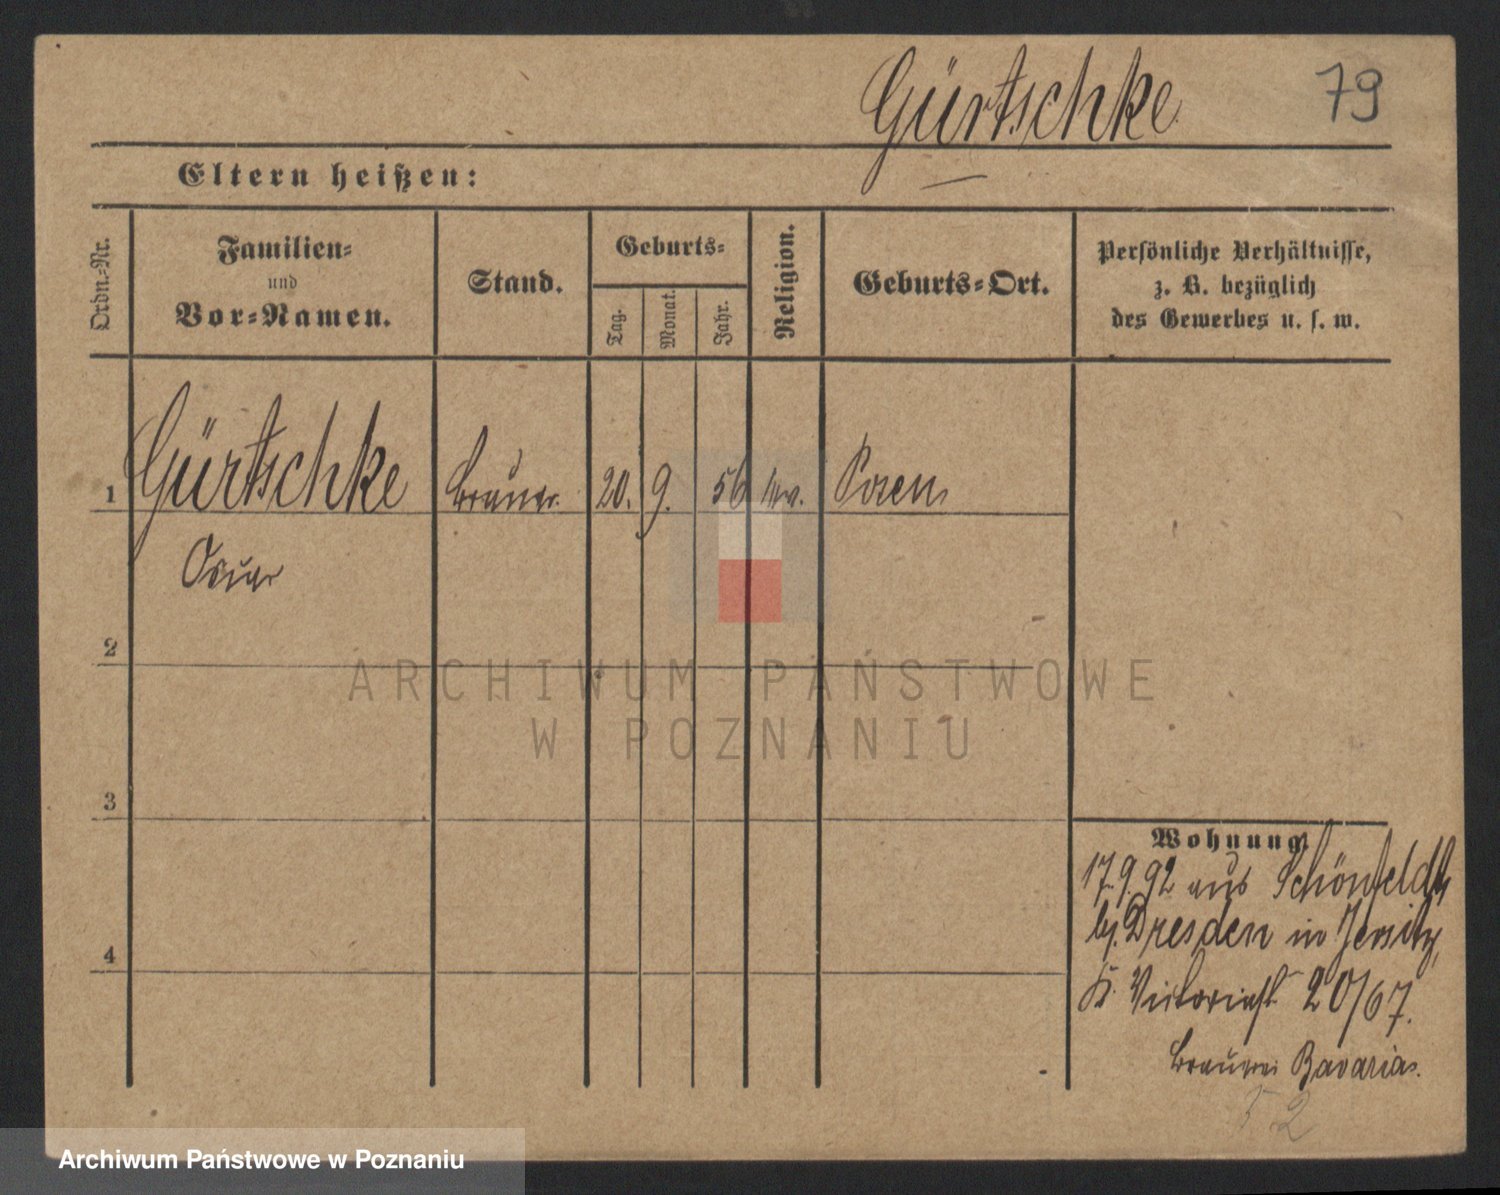 Gürtschke 79
Eltern heißen:
Ordn.-Nr.
Familien-
und
Vor-Namen.
Stand.
Geburts-
Tag.
Monat.
Jahr.
Religion.
Geburts-Ort.
Persönliche Verhältnisse,
z. B. bezüglich
des Gewerbes u. s. w.
1 Gürtschke Brauer. 20. 9. 56 ev. Posen
Oscar
2
ARCHIWUM PAŃSTWOWE
W POZNANIU
3
4
Wohnung.
17.9.92 aus Schönfeld
b. Dresden in Jersitz,
K. Victoriast. 20/67.
Brauerei Bavaria.
52
Archiwum Państwowe w Poznaniu